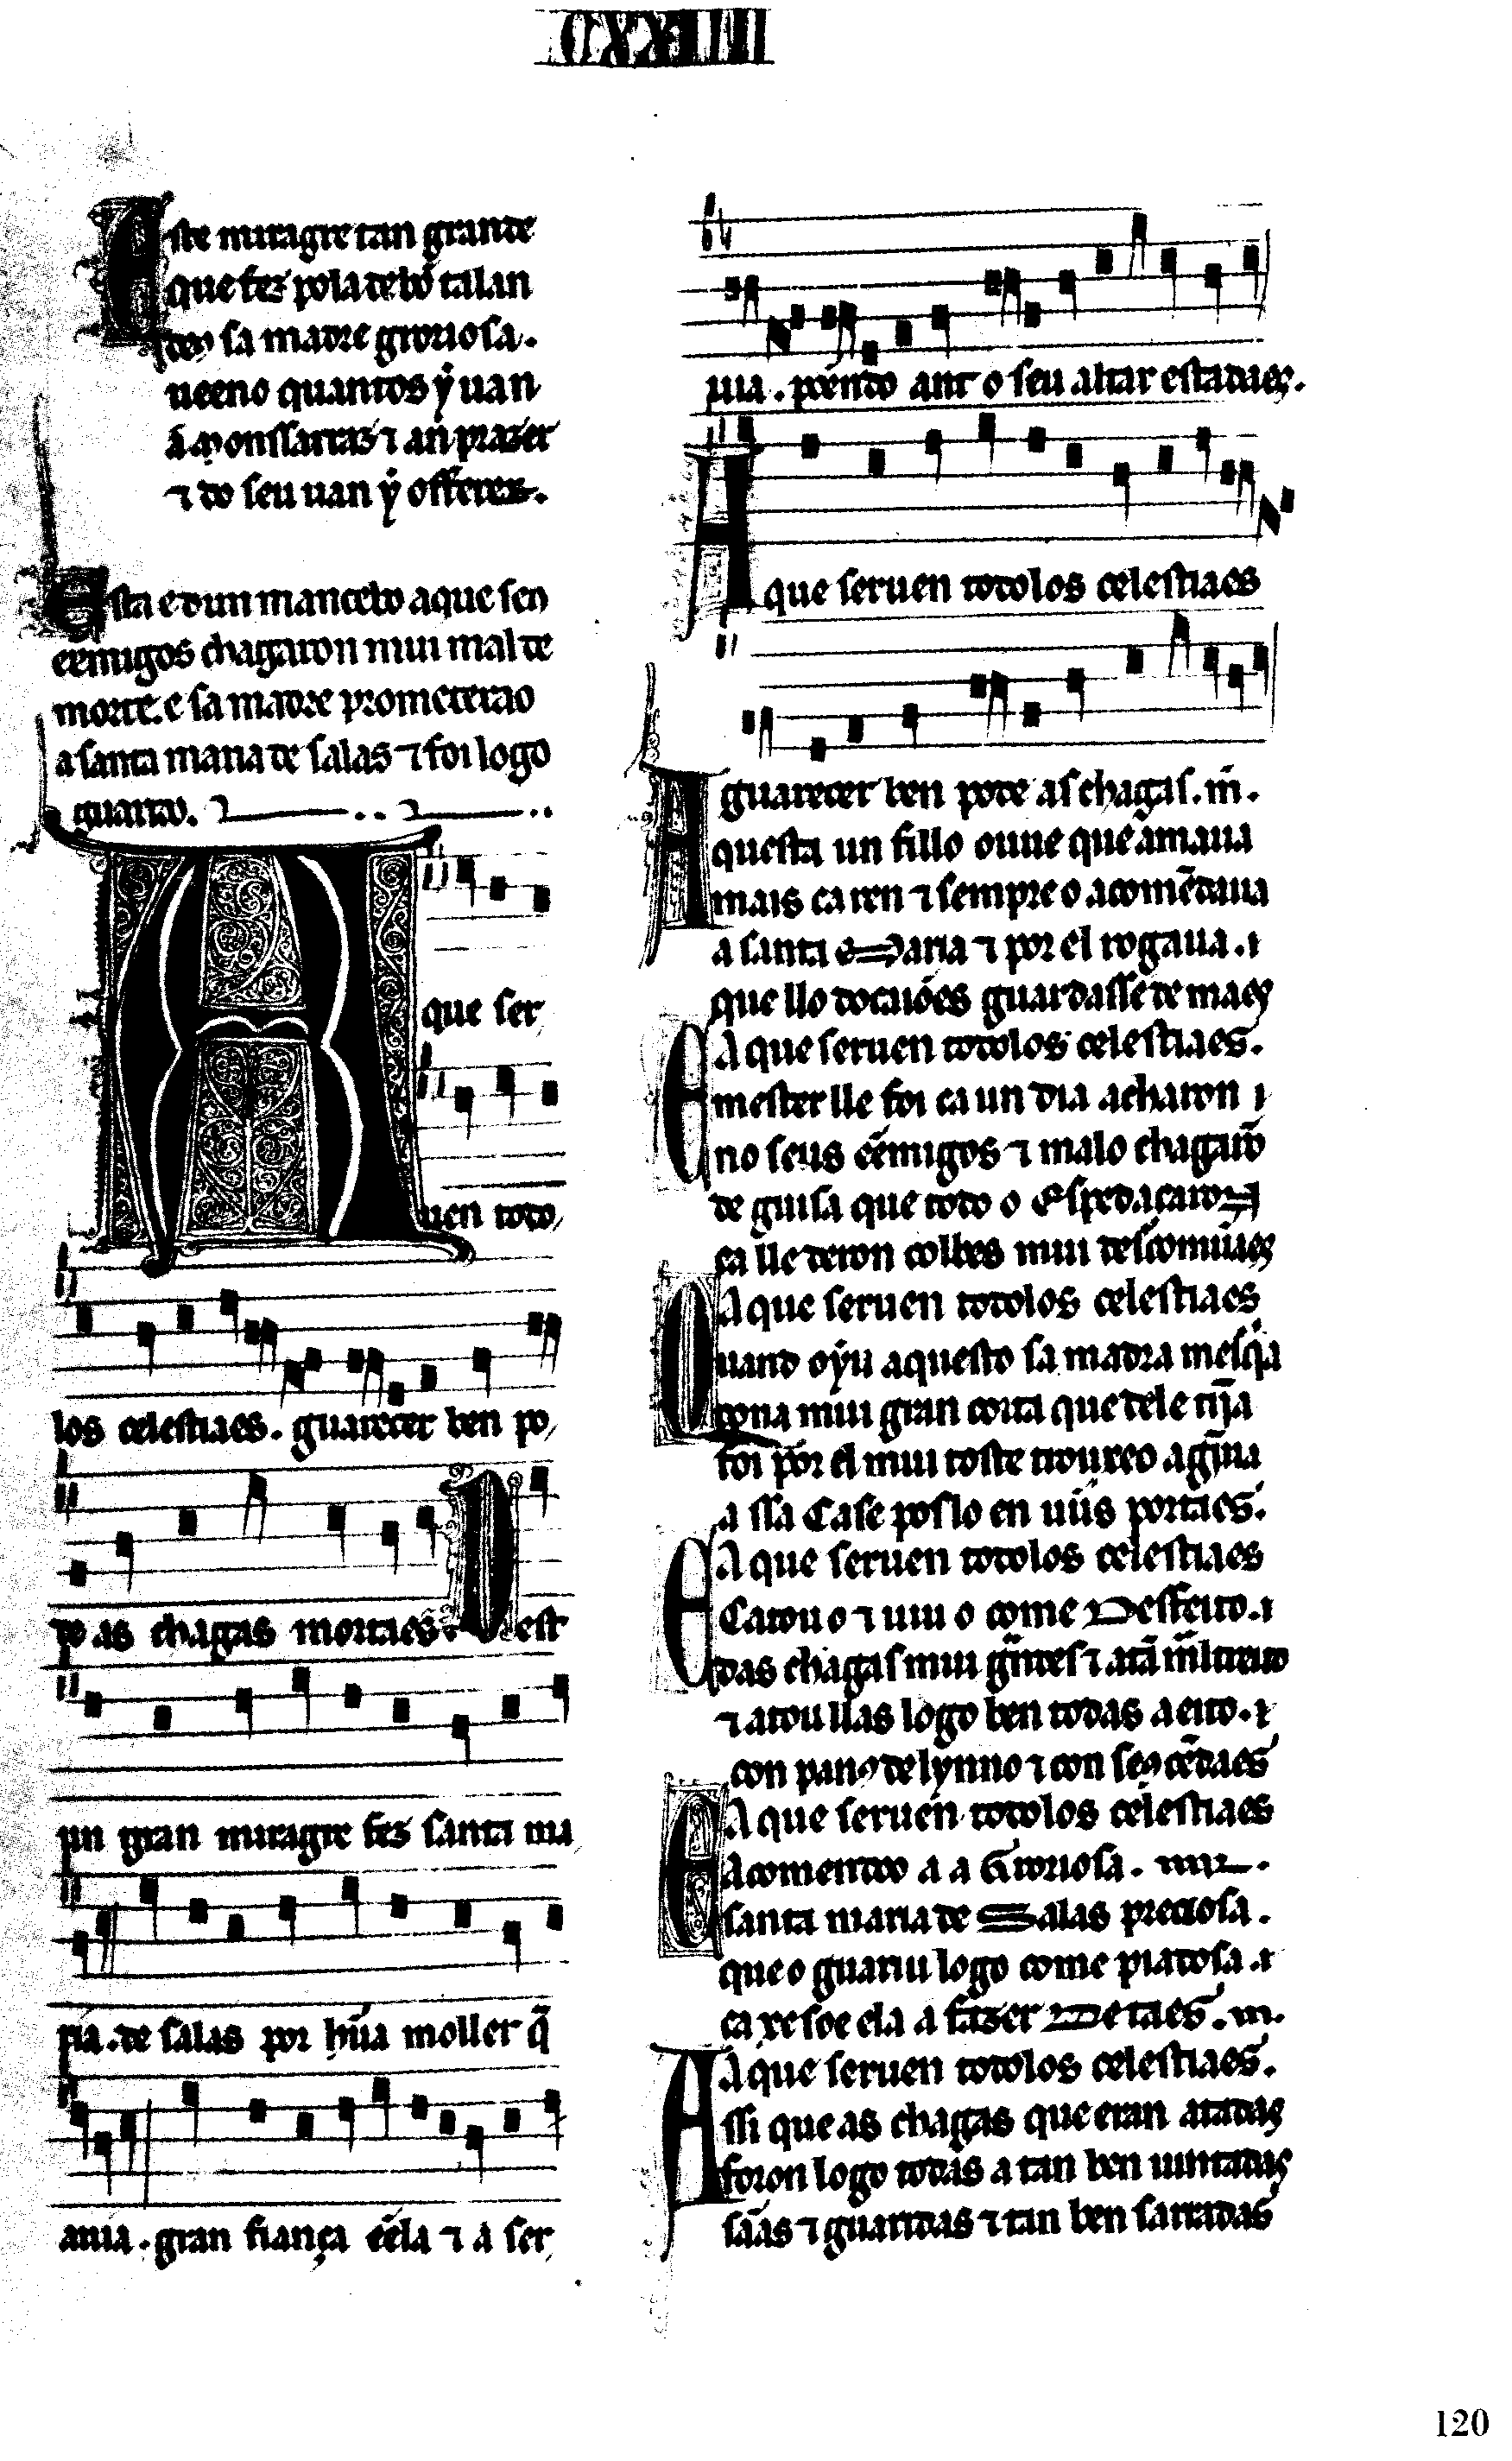 CXXIIII
Este miragre tan grande
que fez pola de bõ talan
deꝯ sa madre grorioſa.
ueeno quantos ẏ uan
ꞇ an prazer
ꞇ do seu uan ẏ offerer.
Esta e dun mancebo aque seꝯ
eẽmigos chagaron mui mal de
morte. e sa madre prometerao
a santa maria de salas ꞇ foi logo
guarido.
A que ser
uen todo
los celestiaes. guarecer ben po
de as chagas mortaes. Dest
un gran miragre fez santa ma
ria. de salas por hũa moller q̃
auia. gran fiança eẽla ꞇ a ser
uia. põendo ant o seu altar estadaes.
A que seruen todolos celestiaes
guarecer ben pode as chagas. m̃.
Aquesta un fillo ouue que amaua
mais ca ren ꞇ sempre o acomẽdaua
a santa Maria ꞇ por el rogaua.
que llo guardasse de maes
A que seruen todolos celestiaes.
E mester lle foi ca un dia acharon
no seus eẽmigos ꞇ malo chagarõ
de guisa que todo o Espedaçaron
ca lle deron colbes mui descomũaes
A que seruen todolos celestiaes
Quand oẏu aquesto sa madra mesqỹa
dona mui gran coita que dele tĩja
foi por el mui toste trouxeo agĩna
a ssa Casa e poslo en ũus portaes.
A que seruen todolos celestiaes
E Catou o ꞇ uiu o come Desfeito.
das chagas mui
ꞇ atou llas logo ben todas a eito.
con pano de lynno ꞇ con seꝯ cẽdaes
A que seruen todolos celestiaes
E acomendoo a a Groriosa.
santa maria de Salas preciosa.
que o guariu logo come piadosa.
ca xe soe ela a fazer De taes.
A que seruen todolos celestiaes.
Assi que as chagas que eran atadas
foron logo todas a tan ben iuntadas
sãas ꞇ guaridas ꞇ tan ben sarradas
120